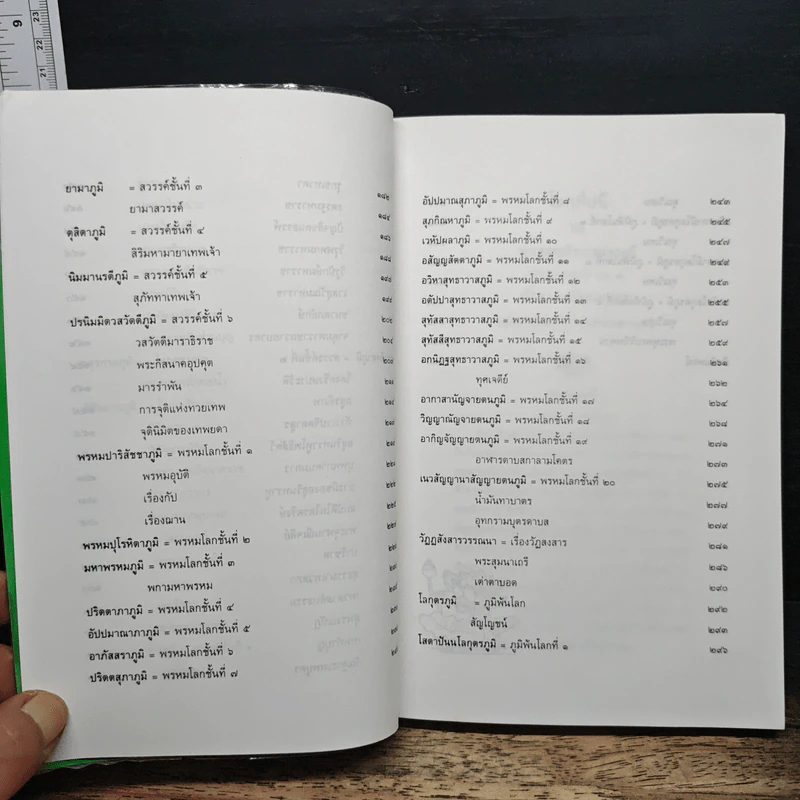 ยามาภูมิ = สวรรค์ชั้นที่ ๓ ๑๘๒
ยามาสวรรค์ ๑๘๔
ดุสิตาภูมิ = สวรรค์ชั้นที่ ๔ ๑๘๖
สิริมหามายาเทพเจ้า ๑๘๘
นิมมานรดีภูมิ = สวรรค์ชั้นที่ ๕
สุภัททาเทพเจ้า
ปรนิมมิตวสวัตตีภูมิ = สวรรค์ชั้นที่ ๖ ๒๐๒
วสวัตตีมาราธิราช ๒๐๔
พระกีสนาคอุปคุต
มารรำพัน
การจุติแห่งทวยเทพ
จุตินิมิตของเทพยดา
พรหมปาริสัชชาภูมิ = พรหมโลกชั้นที่ ๑
พรหมอุบัติ
เรื่องกัป
เรื่องฌาน
พรหมปุโรหิตาภูมิ = พรหมโลกชั้นที่ ๒
มหาพรหมภูมิ = พรหมโลกชั้นที่ ๓
พกามหาพรหม
ปริตตาภาภูมิ = พรหมโลกชั้นที่ ๔
อัปปมาณาภาภูมิ = พรหมโลกชั้นที่ ๕
อาภัสสราภูมิ = พรหมโลกชั้นที่ ๖
ปริตตสุภาภูมิ = พรหมโลกชั้นที่ ๗
อัปปมาณสุภาภูมิ = พรหมโลกชั้นที่ ๘ ๒๔๓
สุภกิณหาภูมิ = พรหมโลกชั้นที่ ๙ ๒๔๕
เวหัปผลาภูมิ = พรหมโลกชั้นที่ ๑๐ ๒๔๗
อสัญญสัตตาภูมิ = พรหมโลกชั้นที่ ๑๑ ๒๔๙
อวิหาสุทธาวาสภูมิ = พรหมโลกชั้นที่ ๑๒ ๒๕๓
อตัปปาสุทธาวาสภูมิ = พรหมโลกชั้นที่ ๑๓ ๒๕๕
สุทัสสาสุทธาวาสภูมิ = พรหมโลกชั้นที่ ๑๔ ๒๕๗
สุทัสสีสุทธาวาสภูมิ = พรหมโลกชั้นที่ ๑๕ ๒๕๙
อกนิฏฐสุทธาวาสภูมิ = พรหมโลกชั้นที่ ๑๖ ๒๖๑
ทุศเจดีย์ ๒๖๒
อากาสานัญจายตนภูมิ = พรหมโลกชั้นที่ ๑๗ ๒๖๔
วิญญาณัญจายตนภูมิ = พรหมโลกชั้นที่ ๑๘ ๒๖๘
อากิญจัญญายตนภูมิ = พรหมโลกชั้นที่ ๑๙ ๒๗๑
อาฬารดาบสกาลามโคตร ๒๗๓
เนวสัญญานาสัญญายตนภูมิ = พรหมโลกชั้นที่ ๒๐ ๒๗๕
น้ำมันทาบาตร ๒๗๗
อุททกรามบุตรดาบส ๒๗๙
วัฏฏสังสารวรรณนา = เรื่องวัฏสงสาร ๒๘๑
พระสุมนาเถรี ๒๘๖
เต่าตาบอด ๒๙๐
โลกุตรภูมิ = ภูมิพ้นโลก ๒๙๒
สัญโญชน์ ๒๙๓
โสดาปันนโลกุตรภูมิ = ภูมิพ้นโลกที่ ๑ ๒๙๖
9
23
22
21